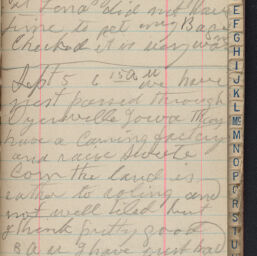 did not have
time to get my Bag
Checked it is very
Sept 5 6 15 a m
we have
just passed through
Iowa They
have a Caning factory
and raise Sweete
Corn the land is
rather to roling and
not well tiled but
I think pretty good
8 a m I have just had
E
F
G
H
I
J
K
L
Mc
M
N
O
P
Q
R
S
T
U